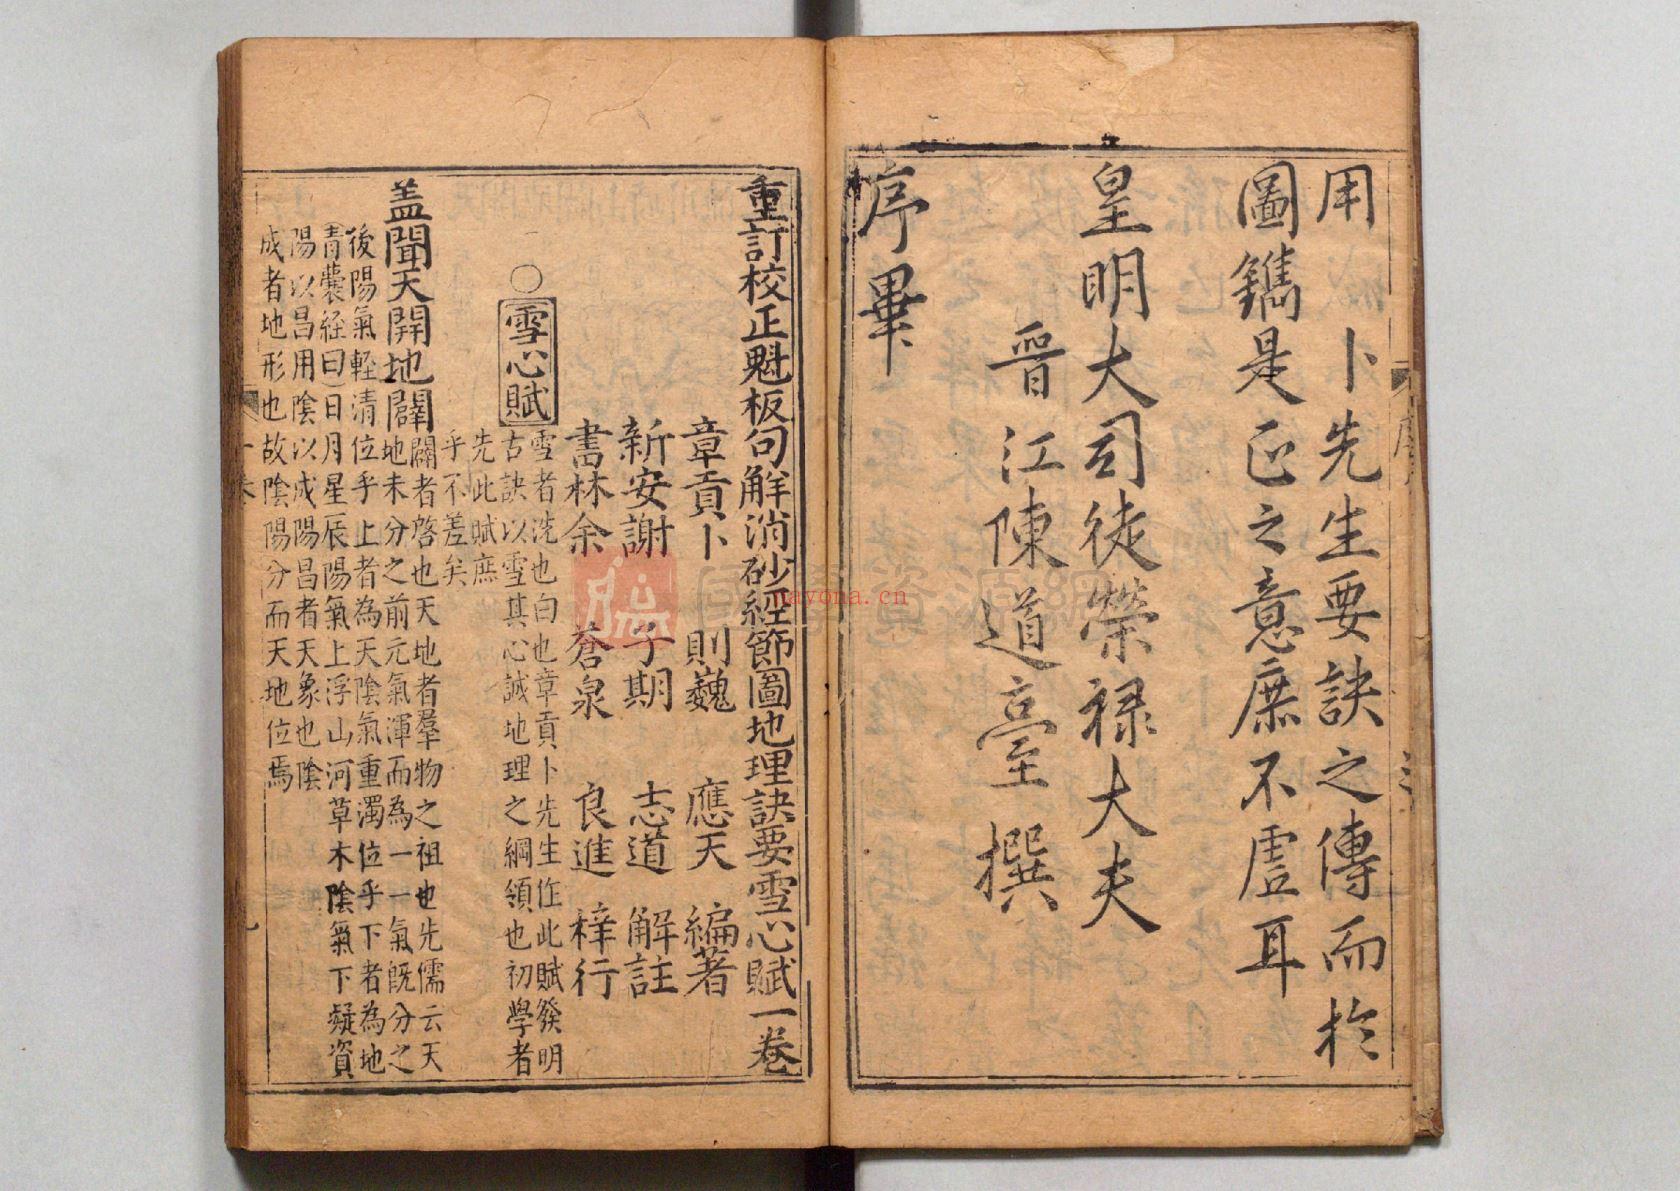 用卜先生要訣之傳而於
圖鐫是正之意庶不虛耳
皇明大司徒榮禄大夫
晉江陳道亨撰
序畢
重訂校正魁板句解消砂經節圖地理訣要雪心賦一卷
章貢卜 則巍 應天 編著
新安謝 子期 志道 解註
書林余 蒼泉 良進 梓行
○雪心賦
雪者洗也白也章貢卜先生作此賦發明
古訣以雪其心誠地理之綱領也初學者
先此賦庶
乎不差矣
盖聞天開地闢
闢者啓也天地者羣物之祖也先儒云天
地未分之前元氣渾而為一一氣既分之
後陽氣輕清位乎上者為天陰氣重濁位乎下者為地
青囊經曰日月星辰陽氣上浮山河草木陰氣下凝資
陽以昌用陰以成陽昌者天象也陰
成者地形也故陰陽分而天地位焉
一卷
國學資源網
nayona.cn